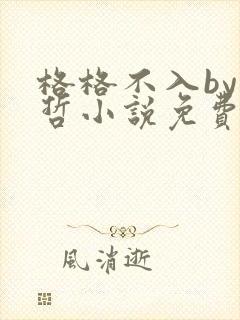 格格不入by
哲小說免費
風消逝